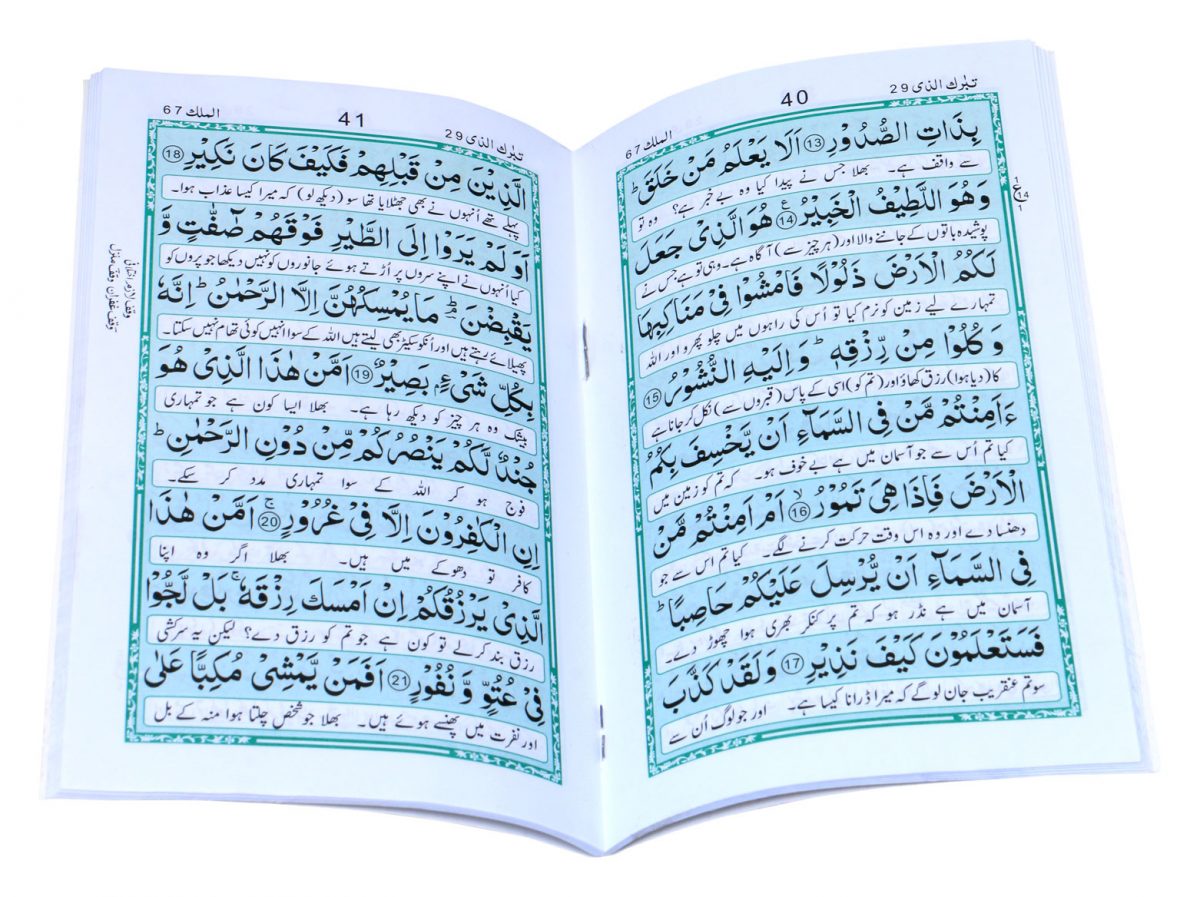 تبٰرك الذى 29
40
الملك 67
بِذَاتِ الصُّدُوۡرِ ⑬ اَلَا يَعۡلَمُ مَنۡ خَلَقَ ؕ
سے واقف ہے۔ بھلا جس نے پیدا کیا وہ بےخبر ہے؟ وہ تو
وَهُوَ اللَّطِيۡفُ الۡخَبِيۡرُ ⑭ هُوَ الَّذِىۡ جَعَلَ
پوشیدہ باتوں کے جاننے والا اور (ہر چیز سے) آگاہ ہے۔ وہی تو ہے جس نے
لَـكُمُ الۡاَرۡضَ ذَلُوۡلًا فَامۡشُوۡا فِىۡ مَنَاكِبِهَا
تمہارے لیے زمین کو نرم کیا تو اُس کی راہوں میں چلو پھرو اور اللہ
وَكُلُوۡا مِنۡ رِّزۡقِهٖ ؕ وَاِلَيۡهِ النُّشُوۡرُ ⑮
کا (دیا ہوا) رزق کھاؤ اور (تم کو) اسی کے پاس (قبروں سے) نکل کر جانا ہے
ءَاَمِنۡتُمۡ مَّنۡ فِى السَّمَآءِ اَنۡ يَّخۡسِفَ بِكُمُ
کیا تم اُس سے جو آسمان میں ہے بے خوف ہو۔ کہ تم کو زمین میں
الۡاَرۡضَ فَاِذَا هِىَ تَمُوۡرُ ۙ ⑯ اَمۡ اَمِنۡتُمۡ مَّنۡ
دھنسا دے اور وہ اس وقت حرکت کرنے لگے۔ کیا تم اس سے جو
فِى السَّمَآءِ اَنۡ يُّرۡسِلَ عَلَيۡكُمۡ حَاصِبًا ؕ
آسمان میں ہے نڈر ہو کہ تم پر کنکر بھری ہوا چھوڑ دے۔
فَسَتَعۡلَمُوۡنَ كَيۡفَ نَذِيۡرِ ⑰ وَلَقَدۡ كَذَّبَ
سو تم عنقریب جان لو گے کہ میرا ڈرانا کیسا ہے۔ اور جو لوگ اُن سے
ع
14
1
تبٰرك الذى 29
41
الملك 67
الَّذِيۡنَ مِنۡ قَبۡلِهِمۡ فَكَيۡفَ كَانَ نَكِيۡرِ ⑱
پہلے تھے اُنہوں نے بھی جھٹلایا تھا سو (دیکھ لو) کہ میرا کیسا عذاب ہوا۔
اَوَلَمۡ يَرَوۡا اِلَى الطَّيۡرِ فَوۡقَهُمۡ صٰٓفّٰتٍ وَّ
کیا اُنہوں نے اپنے سروں پر اُڑتے ہوئے جانوروں کو نہیں دیکھا جو پروں کو
يَقۡبِضۡنَ ؕۘ مَا يُمۡسِكُهُنَّ اِلَّا الرَّحۡمٰنُ ؕ اِنَّهٗ
پھیلائے رہتے ہیں اور اُنکو سکیڑ بھی لیتے ہیں اللہ کے سوا اُنہیں کوئی تھام نہیں سکتا۔
بِكُلِّ شَىۡءٍۢ بَصِيۡرٌ ⑲ اَمَّنۡ هٰذَا الَّذِىۡ هُوَ
بیشک وہ ہر چیز کو دیکھ رہا ہے۔ بھلا ایسا کون ہے جو تمہاری
جُنۡدٌ لَّكُمۡ يَنۡصُرُكُمۡ مِّنۡ دُوۡنِ الرَّحۡمٰنِ ؕ
فوج ہو کر اللہ کے سوا تمہاری مدد کر سکے۔
اِنِ الۡكٰفِرُوۡنَ اِلَّا فِىۡ غُرُوۡرٍ ۚ ⑳ اَمَّنۡ هٰذَا
کافر تو دھوکے میں ہیں۔ بھلا اگر وہ اپنا
الَّذِىۡ يَرۡزُقُكُمۡ اِنۡ اَمۡسَكَ رِزۡقَهٗ ۚ بَلۡ لَّجُّوۡا
رزق بند کرلے تو کون ہے جو تم کو رزق دے؟ لیکن یہ سرکشی
فِىۡ عُتُوٍّ وَّنُفُوۡرٍ ㉑ اَفَمَنۡ يَّمۡشِىۡ مُكِبًّا عَلٰى
اور نفرت میں پھنسے ہوئے ہیں۔ بھلا جو شخص چلتا ہوا منہ کے بل
وقف غفران وقف منزل